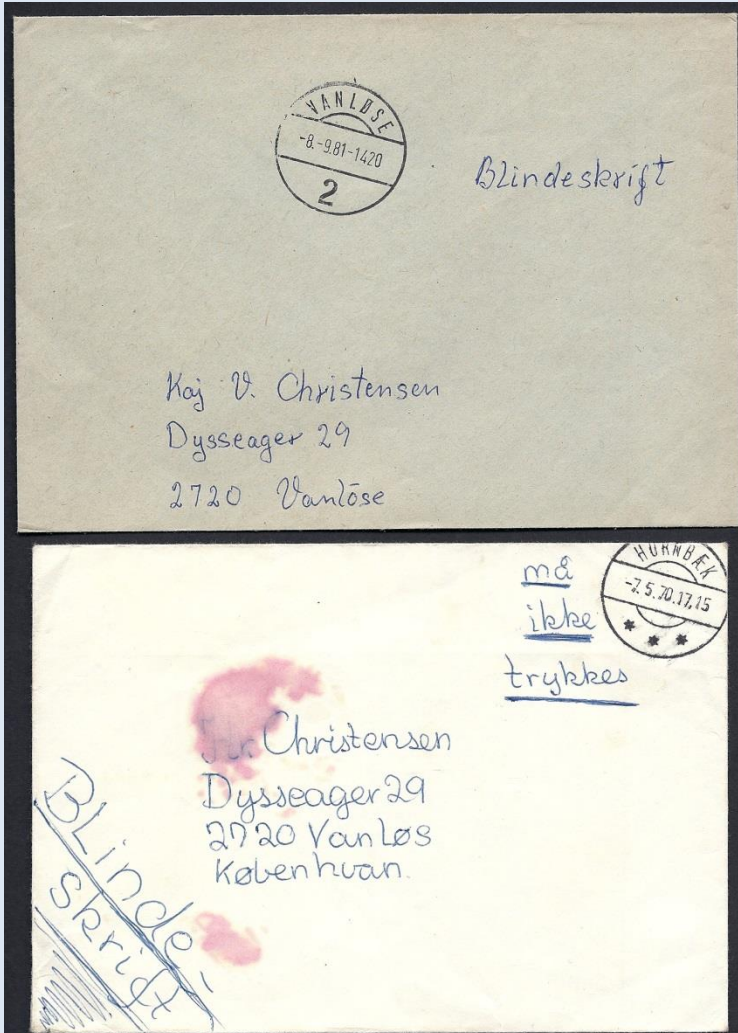 VANLØSE
-8.-9.81-1420
2
Blindeskrift
Kaj V. Christensen
Dysseager 29
2720 Vanlöse
HORNBÆK
-7.5.70.17,15
må
ikke
trykkes
Hr. Christensen
Dysseager 29
2720 Vanløs
Københvan.
BLinde-
skrift